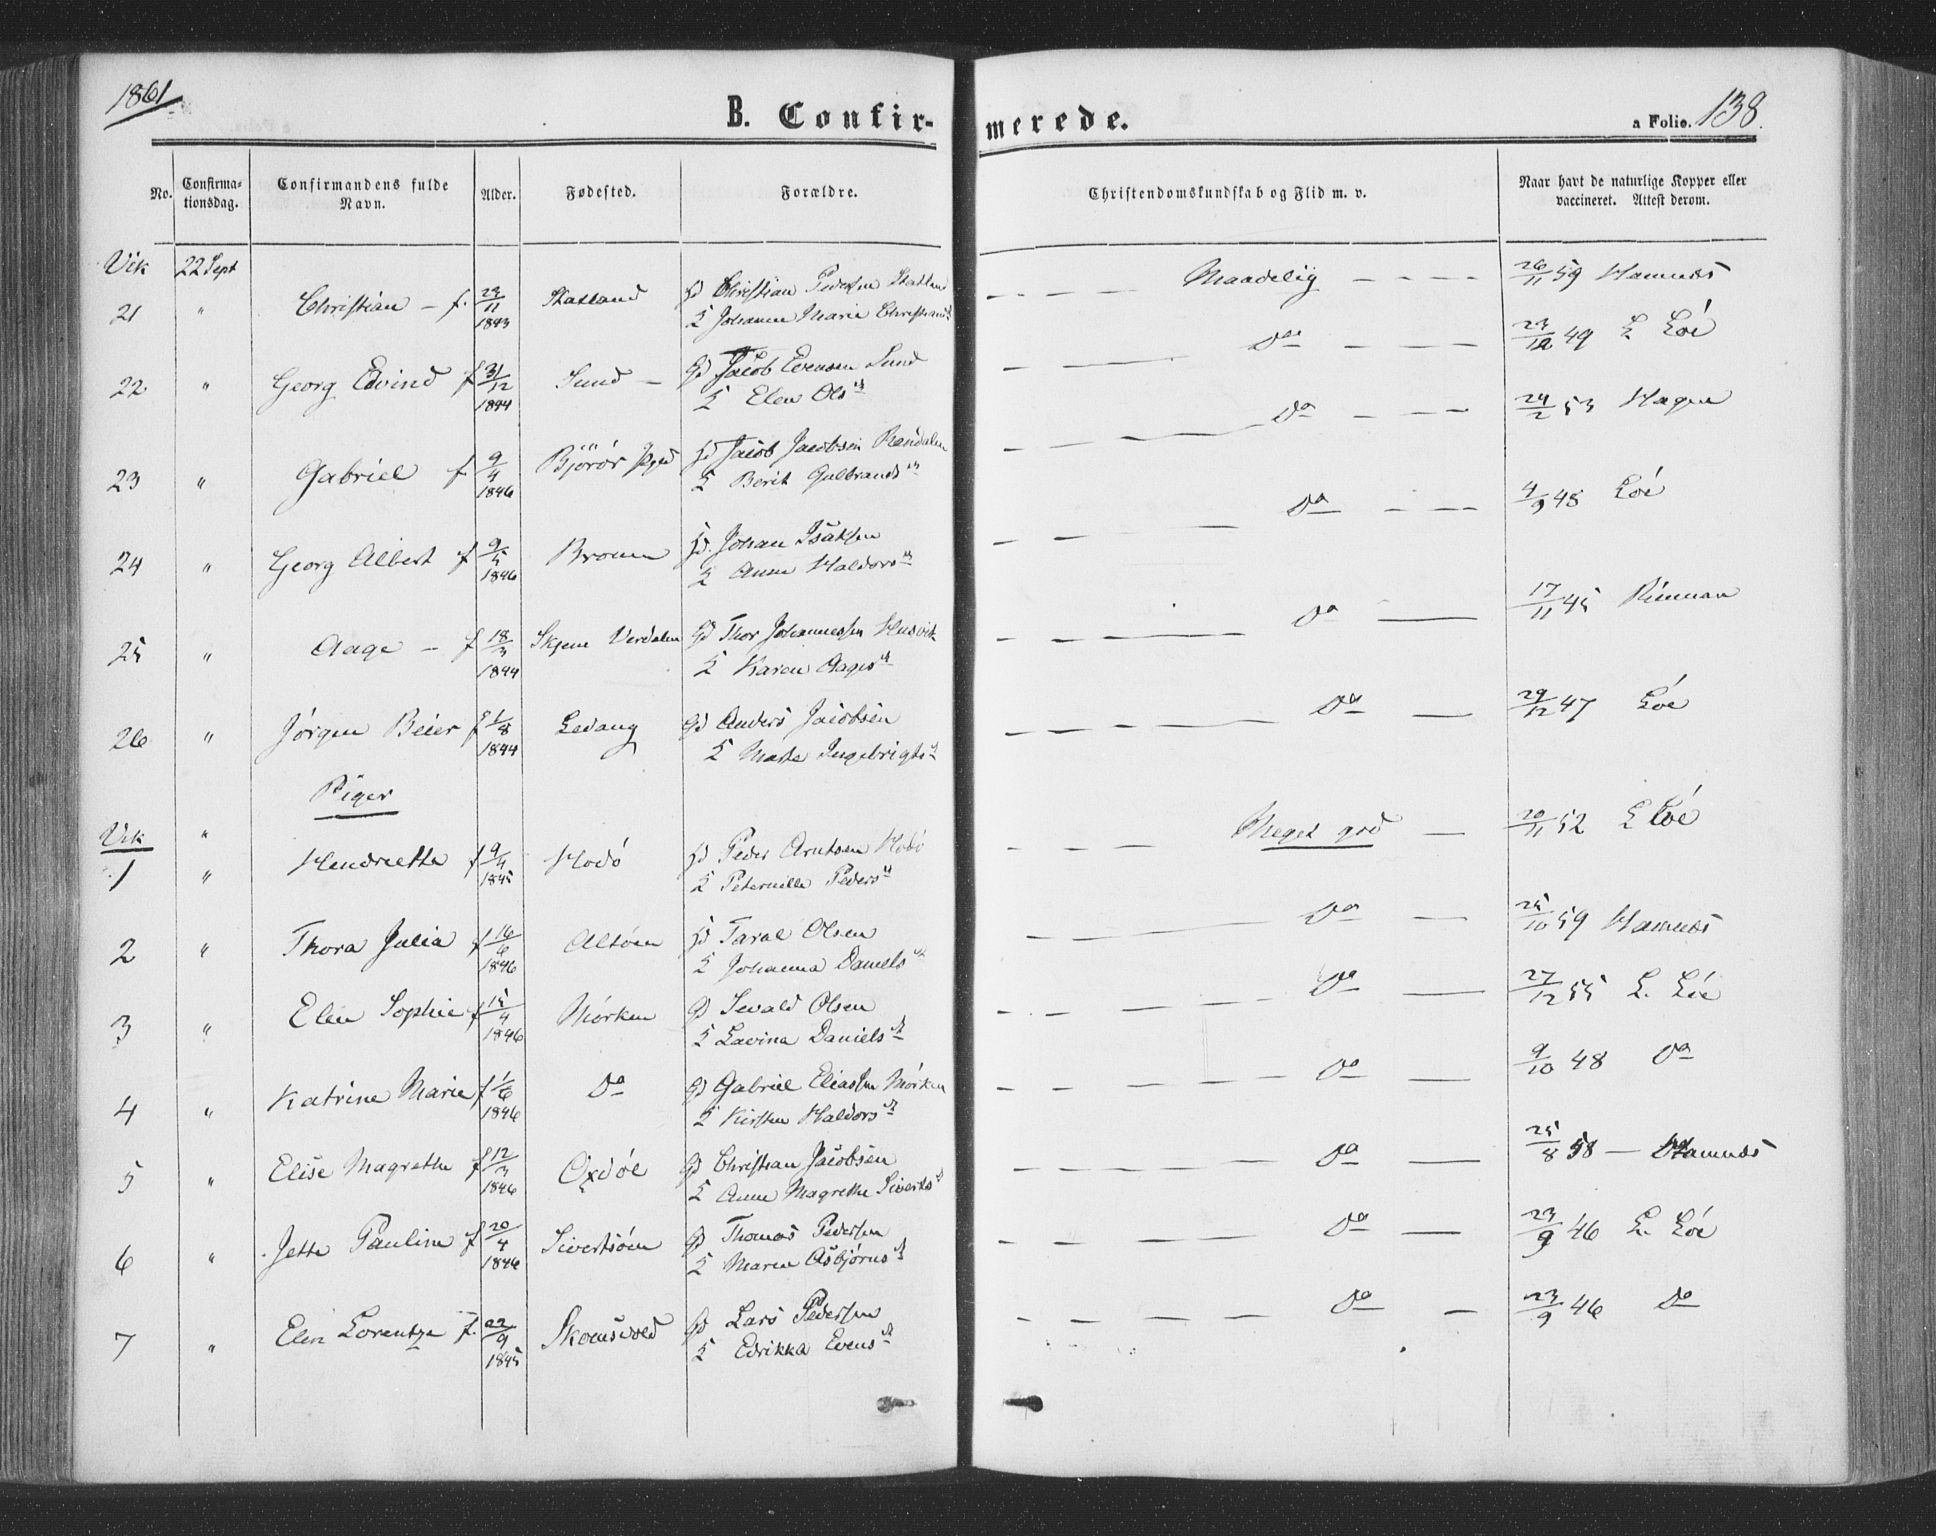 1861
B. Confir-
merede.
a Folio. 138.
No.
Confirma-
tionsdag.
Confirmandens fulde
Navn.
Alder.
Fødested.
Forældre.
Christendomskundskab og Flid m. v.
Naar havt de naturlige Kopper eller
vaccineret. Attest derom.
Vik 22 Sept
21 " Christian - f. 23/11 1843 Statland Gd Christian Pedersen Statland
K Johanna Marie Christians
Maadelig 26/11 59 Hamnes
22 " Georg Edvind f 31/12 1844 Sund Gd Jacob Evensen Sund
K Elen Olsd
Do 23/12 49 L Löé
23 " Gabriel f 9/4 1846 Björör Pgd Gd Jacob Jacobsen
K Berit Gulbrandsd
Do 24/2 53 Hagen
24 " Georg Albert f 9/5 1846 Broum Gd. Johan Isaksen
K Anne Haldorsd
Do 4/9 48 Löé
25 " Aage - f 18/3 1844 Skjene Verdalen Gd Thor Johannessen Husvik
K Karen Aagesd
Do 17/11 45
26 " Jörgen Beier f 1/8 1844 Ledang Gd Anders Jacobsen
K Mathe Ingebrigtsd
Do 29/12 47 Löe
Piger
Vik "
1 " Hendriette f 9/4 1845 Hodö Gd Peder Arntsen Hodö
K Peternille Pedersd
Meget god 20/11 52 L Löé
2 " Thora Julia f 16/6 1846 Altöen Gd Taral Olsen
K Johanna Danielsd
Do 25/10 59 Hamnes
3 " Elen Sophie f 15/4 1846 Mörken Gd Sevald Olsen
K Lavina Danielsd
Do 27/12 55 L. Löe
4 " Katrine Marie f 1/6 1846 Do Gd Gabriel Eliassen Mörken
K Kirsten Haldorsd
Do 9/10 48 Do
5 " Elise Magrethe f 12/3 1846 Oxdöl Gd Christian Jacobsen
K Anne Magrethe Sivertsd
Do 25/8 58 — Hamnes
6 " Jette Pauline f 20/4 1846 Sivertsöen Gd Thomas Pedersen
K Maren Asbjörnsd
Do 23/9 46 L. Löe
7 " Elen Lorentze f. 22/9 1845 Gd Lars Pedersen
K Edrikka Evensd
Do 23/9 46 Do